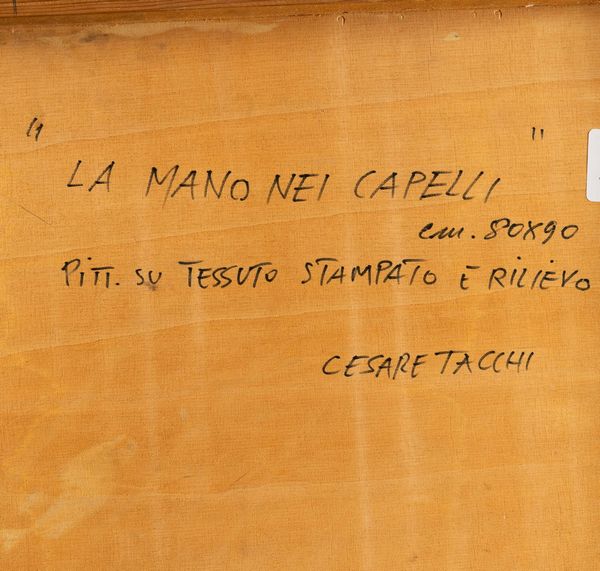 " LA MANO NEI CAPELLI "
cm. 80x90
PITT. SU TESSUTO STAMPATO E RILIEVO
CESARE TACCHI